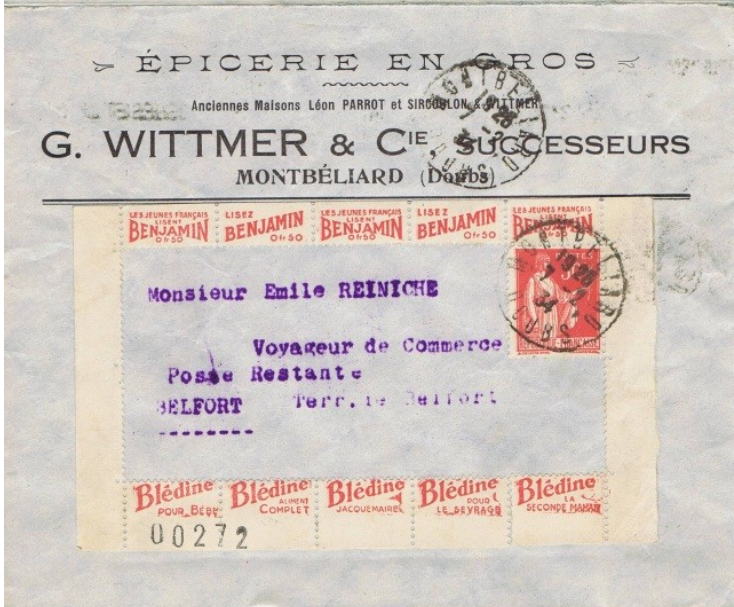 ÉPICERIE EN GROS
Anciennes Maisons Léon PARROT et SIRCOULON & WITTMER
G. WITTMER & CIE, SUCCESSEURS
MONTBÉLIARD (Doubs)
MONTBELIARD
DOUBS
LES JEUNES FRANÇAIS LISENT BENJAMIN 0fr50
LISEZ BENJAMIN 0fr50
LES JEUNES FRANÇAIS LISENT BENJAMIN 0fr50
LISEZ BENJAMIN 0fr50
LES JEUNES FRANÇAIS BENJAMIN 0fr50
MONTBELIARD
DOUBS
POSTES
Monsieur Emile REINICHE
Voyageur de Commerce
Poste Restante
BELFORT Terr.de Belfort
Blédine POUR BÉBÉ
Blédine ALIMENT COMPLET
Blédine JACQUEMAIRE
Blédine POUR LE SEVRAGE
Blédine LA SECONDE MAMAN
00272